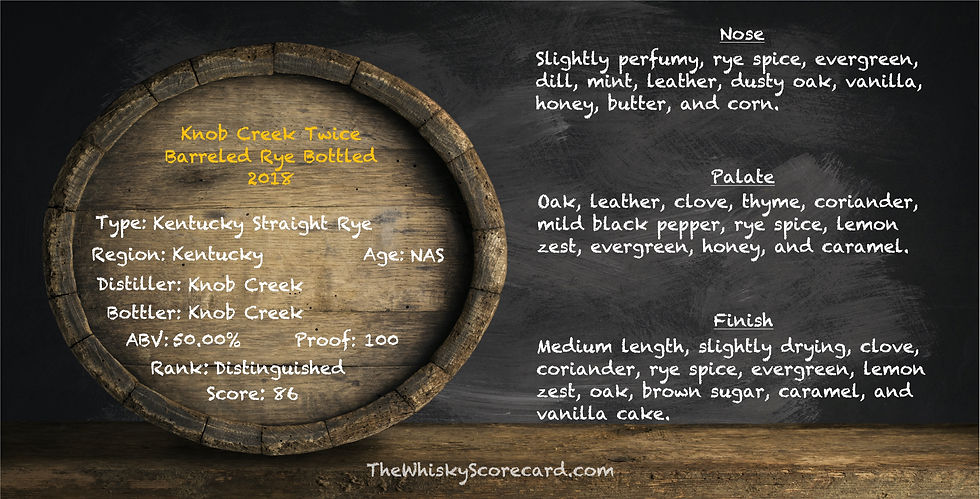 Knob Creek Twice
Barreled Rye Bottled
2018
Type: Kentucky Straight Rye
Region: Kentucky Age: NAS
Distiller: Knob Creek
Bottler: Knob Creek
ABV: 50.00% Proof: 100
Rank: Distinguished
Score: 86
Nose
Slightly perfumy, rye spice, evergreen,
dill, mint, leather, dusty oak, vanilla,
honey, butter, and corn.
Palate
Oak, leather, clove, thyme, coriander,
mild black pepper, rye spice, lemon
zest, evergreen, honey, and caramel.
Finish
Medium length, slightly drying, clove,
coriander, rye spice, evergreen, lemon
zest, oak, brown sugar, caramel, and
vanilla cake.
TheWhiskyScorecard.com